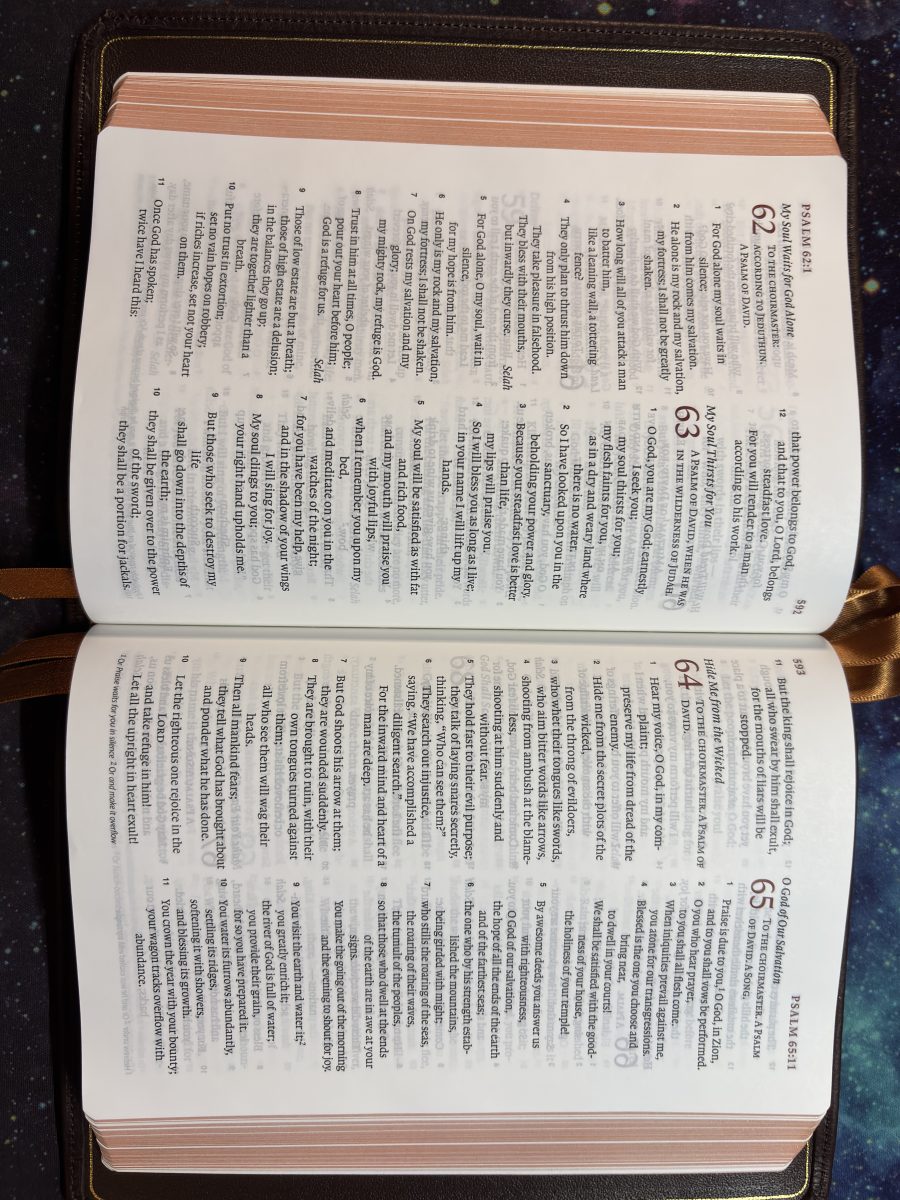 PSALM 62:1
592
My Soul Waits for God Alone
62 TO THE CHOIRMASTER:
ACCORDING TO JEDUTHUN.
A PSALM OF DAVID.
1 For God alone my soul waits in
silence;
from him comes my salvation.
2 He alone is my rock and my salvation,
my fortress; I shall not be greatly
shaken.
3 How long will all of you attack a man
to batter him,
like a leaning wall, a tottering
fence?
4 They only plan to thrust him down
from his high position.
They take pleasure in falsehood.
They bless with their mouths,
but inwardly they curse. Selah
5 For God alone, O my soul, wait in
silence,
for my hope is from him.
6 He only is my rock and my salvation,
my fortress; I shall not be shaken.
7 On God rests my salvation and my
glory;
my mighty rock, my refuge is God.
8 Trust in him at all times, O people;
pour out your heart before him;
God is a refuge for us. Selah
9 Those of low estate are but a breath;
those of high estate are a delusion;
in the balances they go up;
they are together lighter than a
breath.
10 Put no trust in extortion;
set no vain hopes on robbery;
if riches increase, set not your heart
on them.
11 Once God has spoken;
twice have I heard this:
that power belongs to God,
12 and that to you, O Lord, belongs
steadfast love.
For you will render to a man
according to his work.
My Soul Thirsts for You
63 A PSALM OF DAVID, WHEN HE WAS
IN THE WILDERNESS OF JUDAH.
1 O God, you are my God; earnestly
I seek you;
my soul thirsts for you;
my flesh faints for you,
as in a dry and weary land where
there is no water.
2 So I have looked upon you in the
sanctuary,
beholding your power and glory.
3 Because your steadfast love is better
than life,
my lips will praise you.
4 So I will bless you as long as I live;
in your name I will lift up my
hands.
5 My soul will be satisfied as with fat
and rich food,
and my mouth will praise you
with joyful lips,
6 when I remember you upon my
bed,
and meditate on you in the
watches of the night;
7 for you have been my help,
and in the shadow of your wings
I will sing for joy.
8 My soul clings to you;
your right hand upholds me.
9 But those who seek to destroy my
life
shall go down into the depths of
the earth;
10 they shall be given over to the power
of the sword;
they shall be a portion for jackals.
593
PSALM 65:11
11 But the king shall rejoice in God;
all who swear by him shall exult,
for the mouths of liars will be
stopped.
Hide Me from the Wicked
64 TO THE CHOIRMASTER. A PSALM OF
DAVID.
1 Hear my voice, O God, in my com-
plaint;
preserve my life from dread of the
enemy.
2 Hide me from the secret plots of the
wicked,
from the throng of evildoers,
3 who whet their tongues like swords,
who aim bitter words like arrows,
4 shooting from ambush at the blame-
less,
shooting at him suddenly and
without fear.
5 They hold fast to their evil purpose;
they talk of laying snares secretly,
thinking, "Who can see them?"
6 They search out injustice,
saying, "We have accomplished a
diligent search."
For the inward mind and heart of a
man are deep.
7 But God shoots his arrow at them;
they are wounded suddenly.
8 They are brought to ruin, with their
own tongues turned against
them;
all who see them will wag their
heads.
9 Then all mankind fears;
they tell what God has brought about
and ponder what he has done.
10 Let the righteous one rejoice in the
LORD
and take refuge in him!
Let all the upright in heart exult!
O God of Our Salvation
65 TO THE CHOIRMASTER. A PSALM
OF DAVID. A SONG.
1 Praise is due to you,1 O God, in Zion,
and to you shall vows be performed.
2 O you who hear prayer,
to you shall all flesh come.
3 When iniquities prevail against me,
you atone for our transgressions.
4 Blessed is the one you choose and
bring near,
to dwell in your courts!
We shall be satisfied with the good-
ness of your house,
the holiness of your temple!
5 By awesome deeds you answer us
with righteousness,
O God of our salvation,
the hope of all the ends of the earth
and of the farthest seas;
6 the one who by his strength estab-
lished the mountains,
being girded with might;
7 who stills the roaring of the seas,
the roaring of their waves,
the tumult of the peoples,
8 so that those who dwell at the ends
of the earth are in awe at your
signs.
You make the going out of the morning
and the evening to shout for joy.
9 You visit the earth and water it;2
you greatly enrich it;
the river of God is full of water;
you provide their grain,
for so you have prepared it.
10 You water its furrows abundantly,
settling its ridges,
softening it with showers,
and blessing its growth.
11 You crown the year with your bounty;
your wagon tracks overflow with
abundance.
1 Or Praise waits for you in silence 2 Or and make it overflow